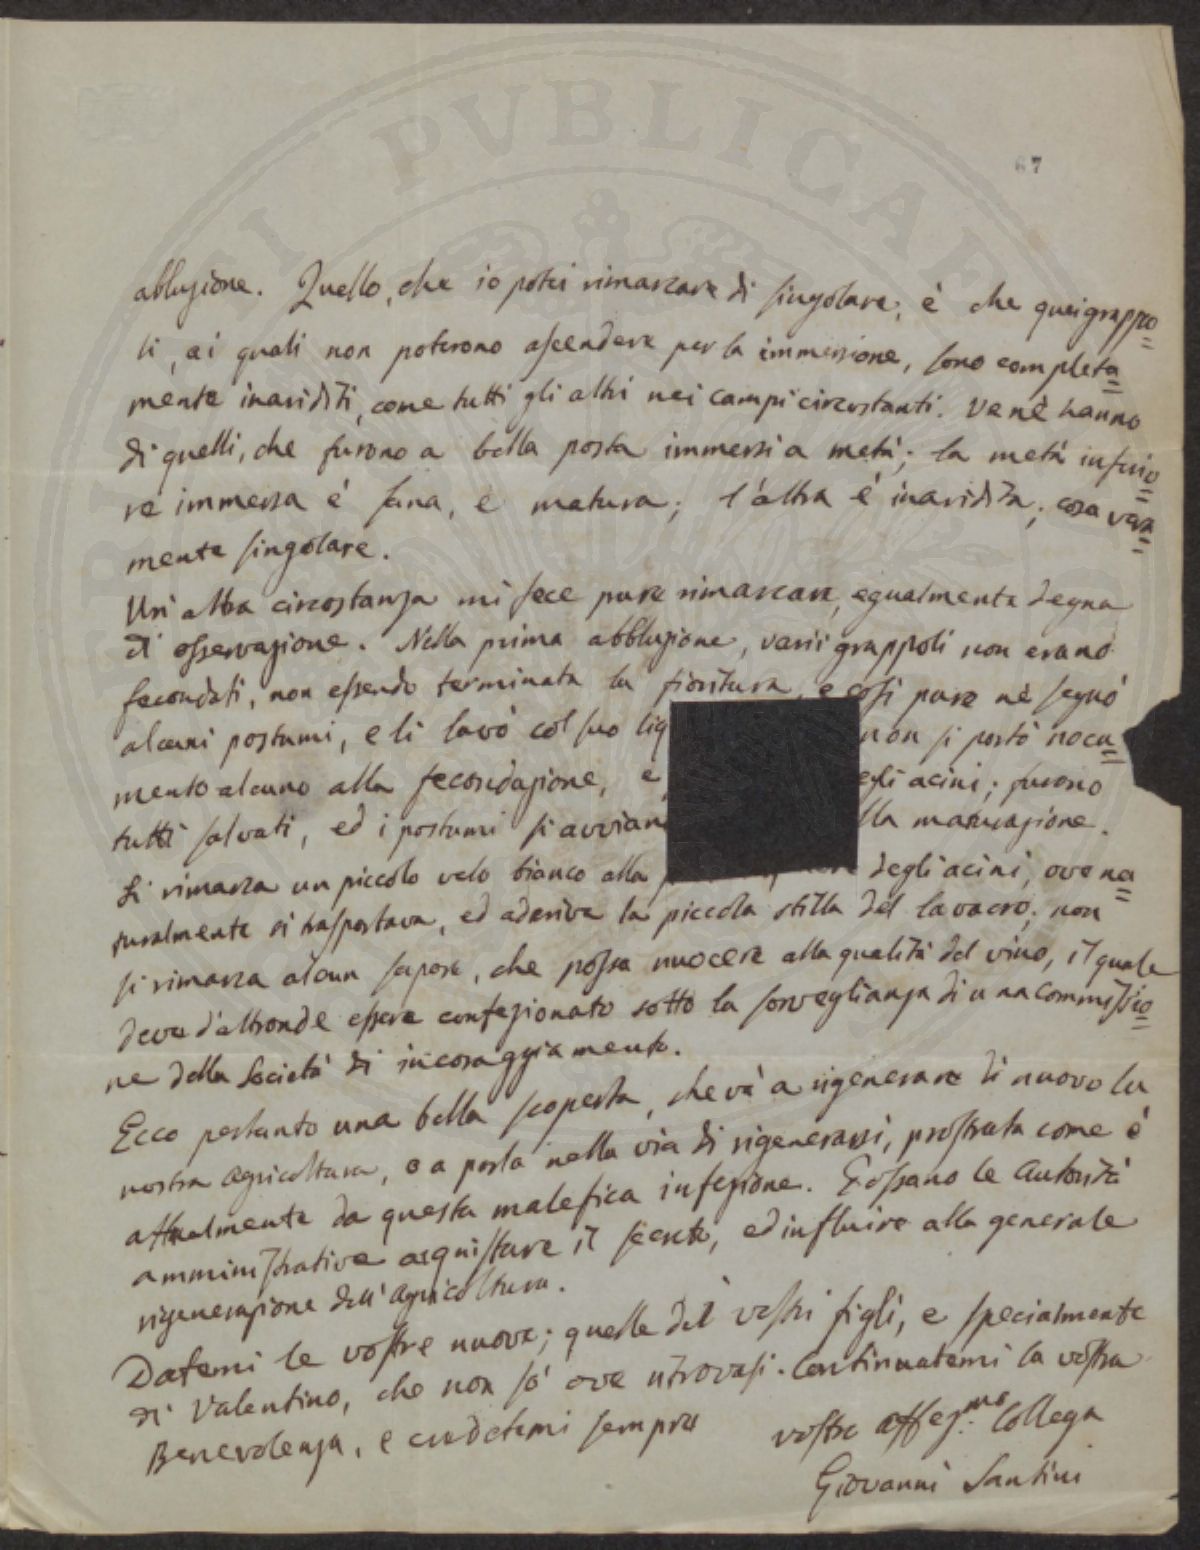 67
abluzione. Quello, che io potei rimarcare di singolare, è che quei grappo=
li, ai quali non poterono ascendere per la immersione, sono completa=
mente inariditi, come tutti gli altri nei campi circostanti. Ve nè hanno
di quelli, che furono a bella posta immersi a metà; la metà inferio=
re immersa è sana, e matura; l'altra è inaridita; cosa vera=
mente singolare.
Un' altra circostanza mi fece pure rimarcare, egualmente degna
di osservazione. Nella prima abbluzione, varii grappoli non erano
fecondati, non essendo terminata la fioritura, e così pure nè segnò
alcuni postumi, e li lavò col suo liq non si portò nocu=
mento alcuno alla fecondazione, e egli acini; furono
tutti salvati, ed i postumi si avviano lla maturazione.
Si rimarca un piccolo velo bianco alla degli acini, ove na=
turalmente si trasportava, ed aderiva la piccola stilla del lavacro; non
si rimarca alcun sapore, che possa nuocere alla qualità del vino, il quale
deve d'altronde essere confezionato sotto la sorveglianza di una commissio=
ne della Società di incoraggiamento.
Ecco pertanto una bella scoperta, che và a rigenerare di nuovo la
nostra agricoltura, o a porla nella via di rigenerarsi, prostrata come è
attualmente da questa malefica infezione. Possano le Autorità
amministrative acquistare il secreto, ed influire alla generale
rigenerazione dell'agricoltura.
Datemi le vostre nuove; quelle dei vostri figli, e specialmente
di Valentino, che non sò ove ritrovasi. Continuatemi la vostra
Benevolenza, e credetemi sempre
vostro affez.mo Collega
Giovanni Santini